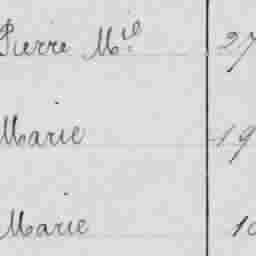 Pierre M.iel 27
Marie 19
Marie 10